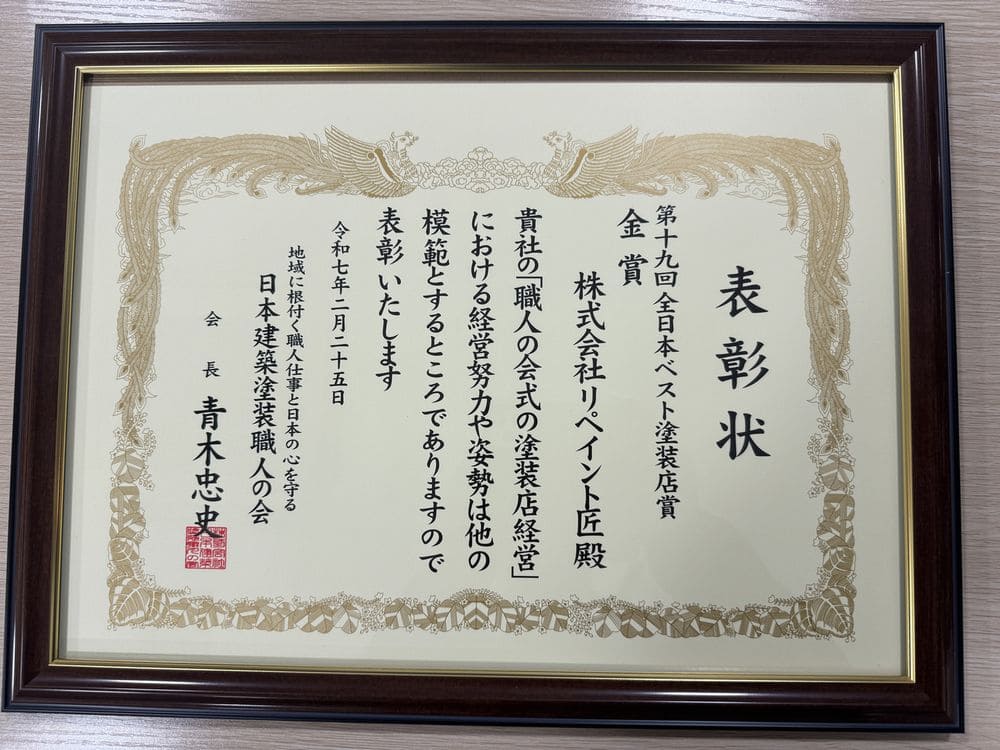 表彰状
第十九回 全日本ベスト塗装店賞
金賞
株式会社リペイント匠 殿
貴社の「職人の会式の塗装店経営」
における経営努力や姿勢は他の
模範とするところでありますので
表彰いたします
令和七年二月二十五日
地域に根付く職人仕事と日本の心を守る
日本建築塗装職人の会
会長 青木忠史